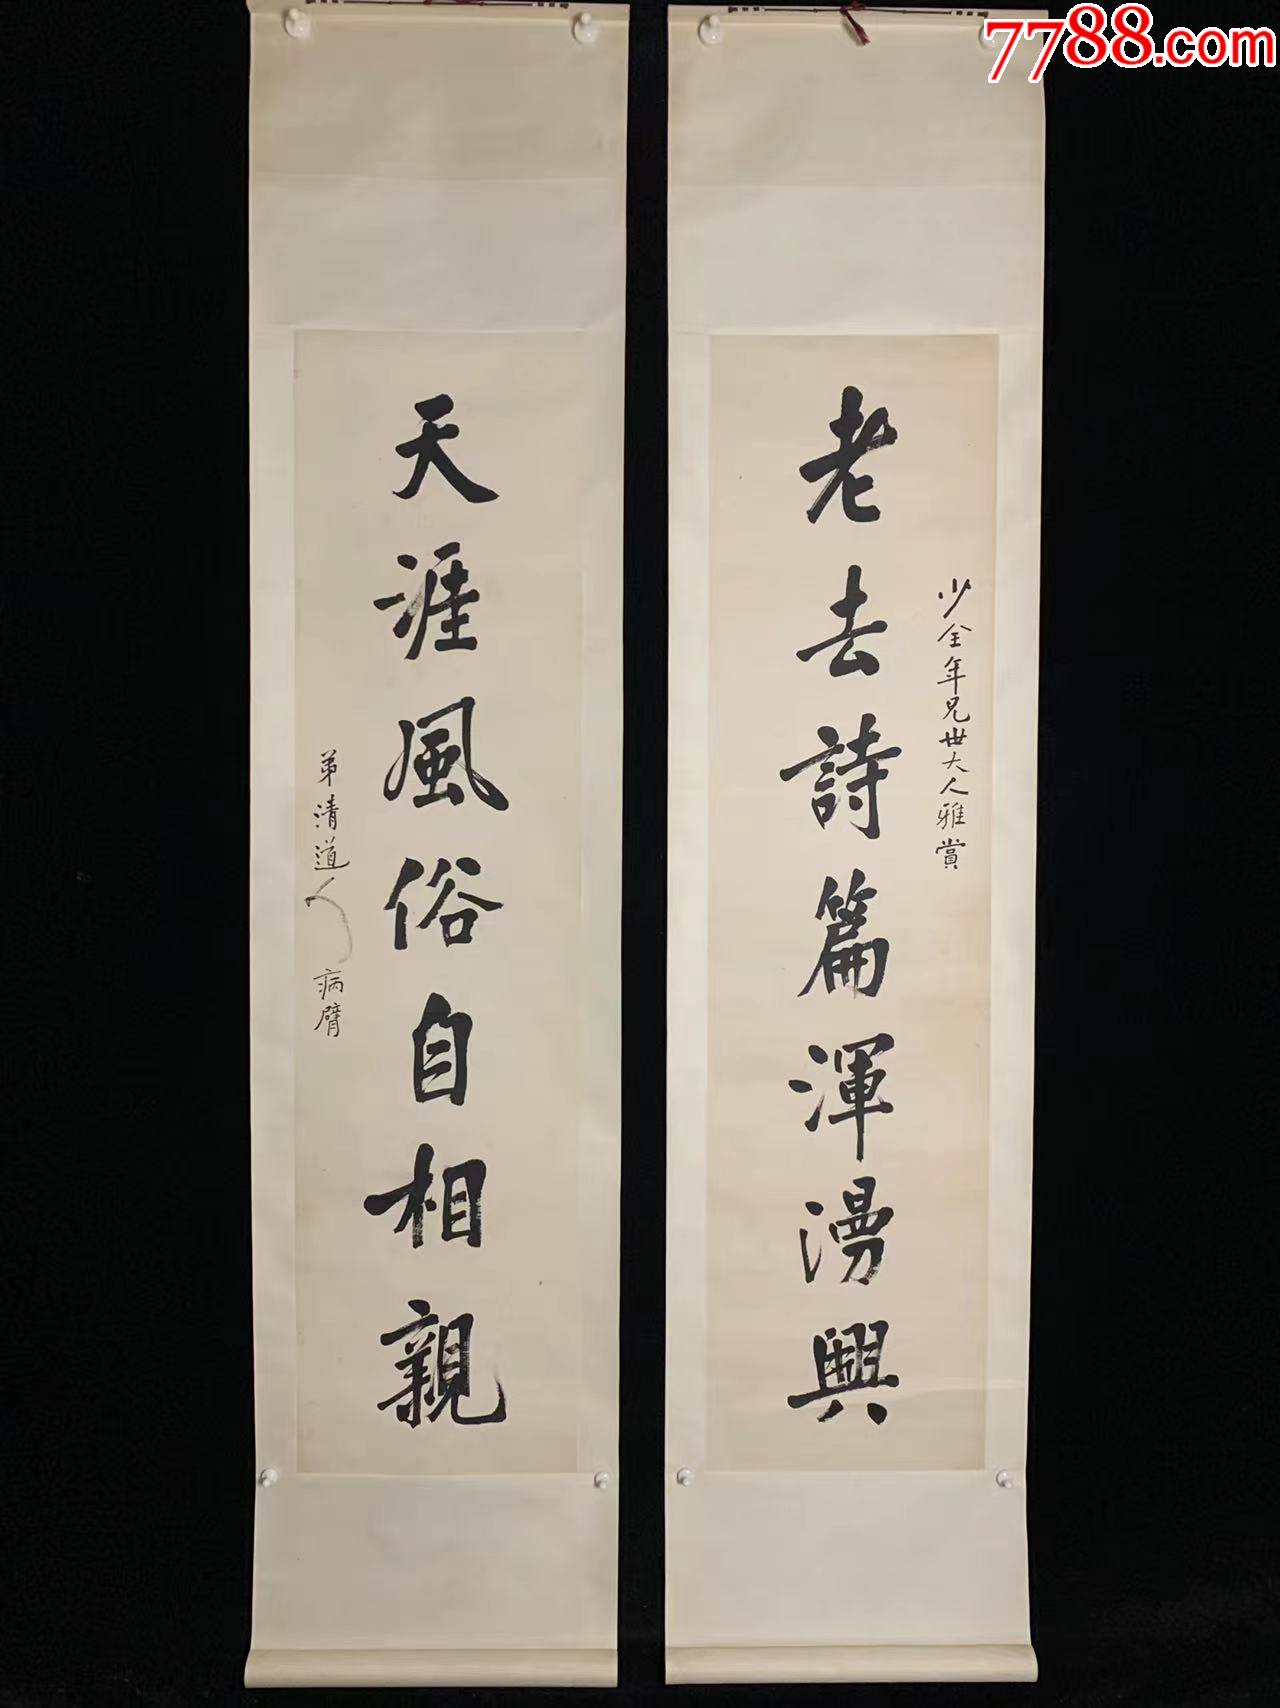 7788.com
老去詩篇渾漫興
少全年兄世大人雅賞
天涯風俗自相親
弟清道人
病臂